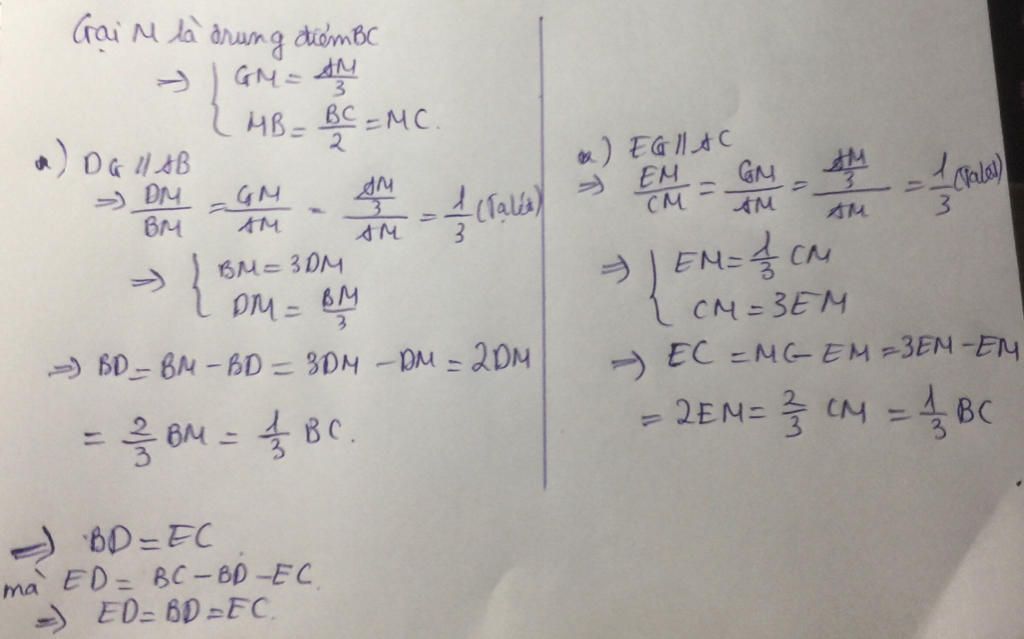 Gọi M là trung điểm BC
=> { GM = AM/3
MB = BC/2 = MC.
a) DG // AB
=> DM/BM = GM/AM = (AM/3)/AM = 1/3 (Talét)
=> { BM = 3DM
DM = BM/3
=> BD = BM - BD = 3DM - DM = 2DM
= 2/3 BM = 1/3 BC.
a) EG // AC
=> EM/CM = GM/AM = (AM/3)/AM = 1/3 (Talét)
=> { EM = 1/3 CM
CM = 3EM
=> EC = MC - EM = 3EM - EM
= 2EM = 2/3 CM = 1/3 BC
=> BD = EC
mà ED = BC - BD - EC.
=> ED = BD = EC.